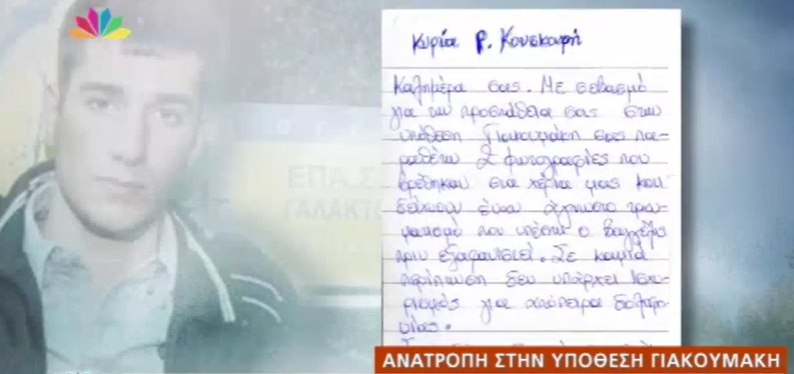 Κυρία Ρ. Κουσκουρή
Καλημέρα σας. Με σεβασμό
για την προσπάθεια σας στην
υπόθεση Γιακουμάκη σας πα-
ραθέτω 2 φωτογραφίες που
βρέθηκαν στα χέρια μας και
δείχνουν έναν άγνωστο τραυ-
ματισμό που υπέστη ο Βαγγέλης
πριν εξαφανιστεί. Σε καμία
περίπτωση δεν υπάρχει ισχυ-
ρισμός για απόπειρα δολοφο-
νίας.
ΕΠΑ.Σ
ΓΑΛΑΚΤ
ΑΝΑΤΡΟΠΗ ΣΤΗΝ ΥΠΟΘΕΣΗ ΓΙΑΚΟΥΜΑΚΗ